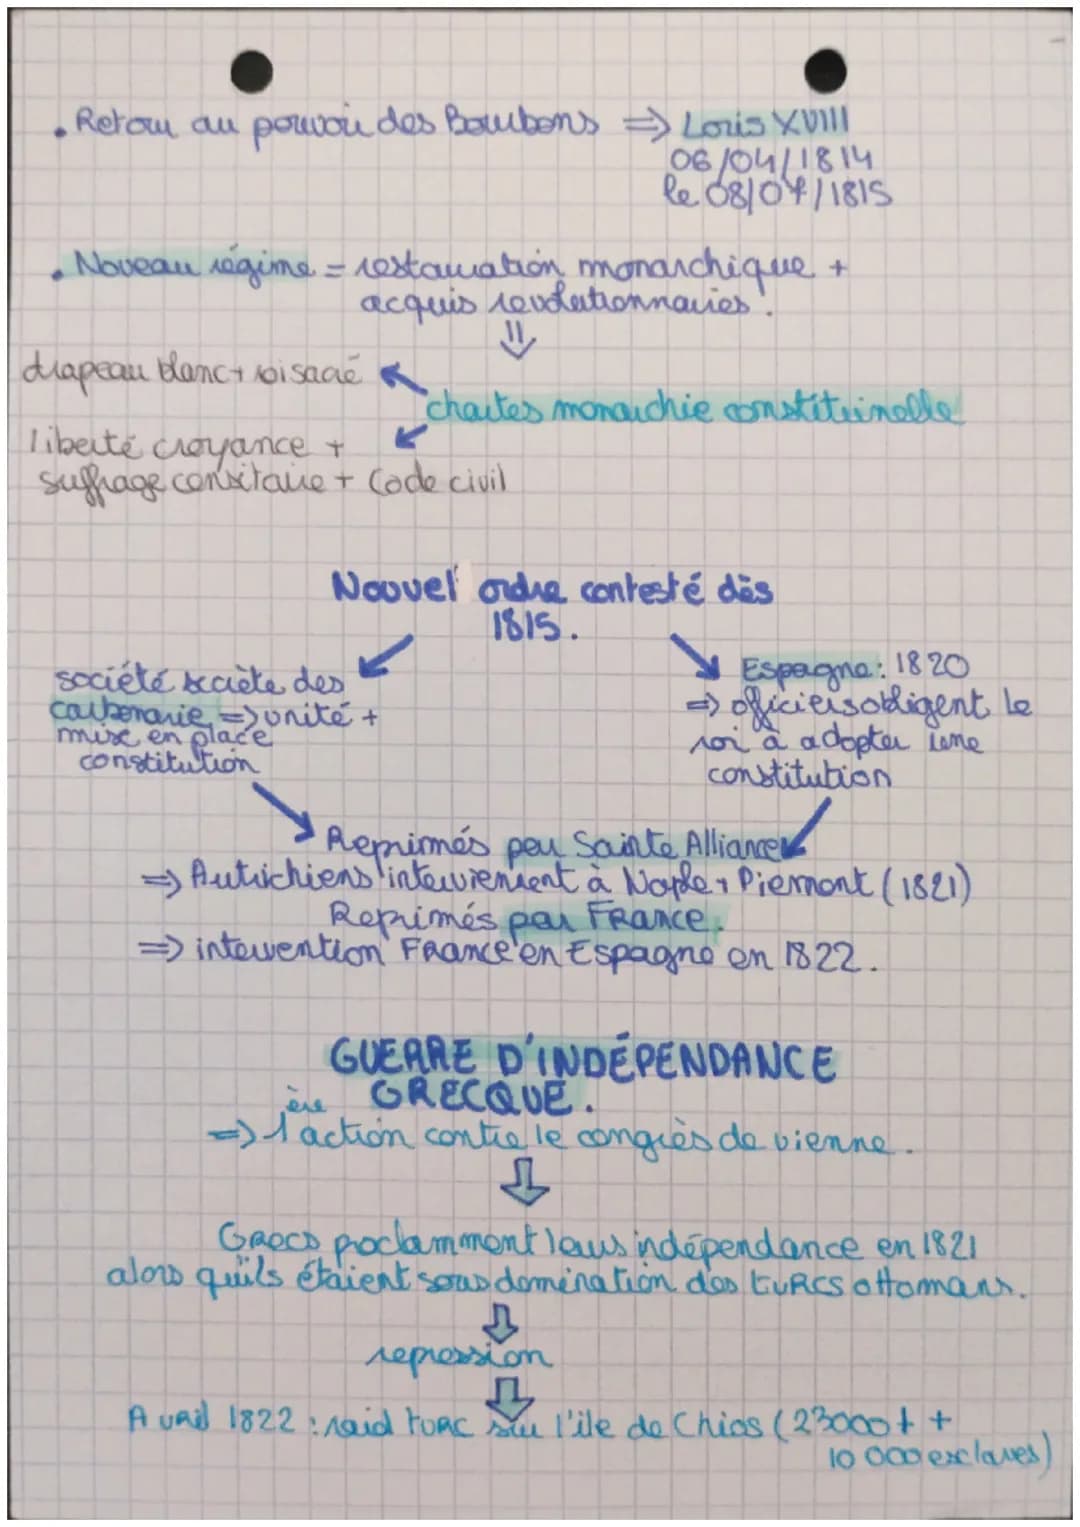 . Retour au pouvoir des Bourbons => Louis XVIII
06/04/1814
le 08/07/1815
. Noveau régime = restauration monarchique +
acquis revolutionnaries.
drapeau blanc + roi sacré
chartes monarchie constituinelle
liberté croyance +
suffrage censitaire + Code civil
Nouvel ordre contesté dès
1815.
société secrète des
carbonarie => unité +
mise en place
constitution
Espagne : 1820
=> officiers obligent le
roi à adopter une
constitution
Reprimés par Sainte Alliance
=> Autrichiens interviennent à Naple + Piemont (1821)
Reprimés par France.
=> intervention France en Espagne en 1822.
GUERRE D'INDÉPENDANCE
GRECQUE.
=> 1ère action contre le congrès de vienne.
Grecs proclamment leurs indépendance en 1821
alors qu'ils étaient sous domination des turcs ottomans.
repression
Avril 1822 : raid turc sur l'ile de Chios (23000 † +
10 000 esclaves)